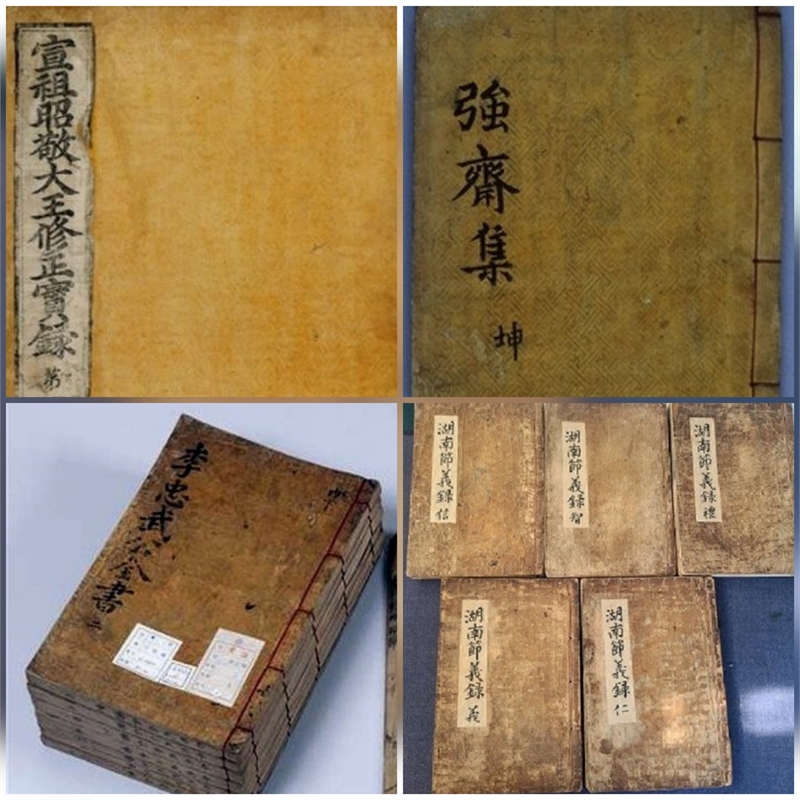 宣祖昭敬大王修正實錄
第
強齋集
坤
李忠武公全書
二
湖南節義錄 信
湖南節義錄 智
湖南節義錄 禮
湖南節義錄 義
湖南節義錄 仁